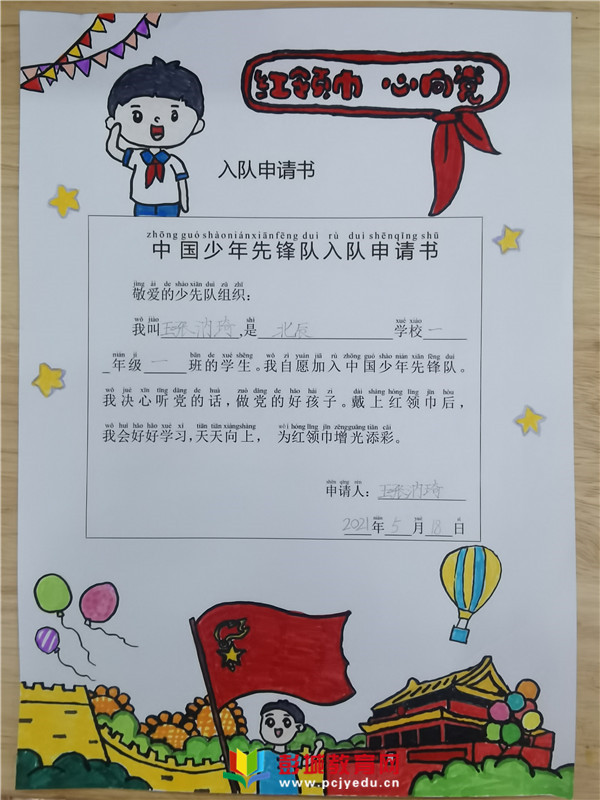 红领巾 心向党
入队申请书
zhōng guó shào nián xiān fēng duì rù duì shēn qǐng shū
中国少年先锋队入队申请书
jìng ài de shào xiān duì zǔ zhī
敬爱的少先队组织:
wǒ jiào shì xué xiào
我叫 ,是 北辰 学校 一
nián jí bān de xué shēng wǒ zì yuàn jiā rù zhōng guó shào nián xiān fēng duì
年级 一 班的学生。我自愿加入中国少年先锋队。
wǒ jué xīn tīng dǎng de huà zuò dǎng de hǎo hái zi dài shàng hóng lǐng jīn hòu
我决心听党的话,做党的好孩子。戴上红领巾后,
wǒ huì hǎo hǎo xué xí tiān tiān xiàng shàng wèi hóng lǐng jīn zēng guāng tiān cǎi
我会好好学习,天天向上, 为红领巾增光添彩。
shēn qǐng rén
申请人:
nián yuè rì
2021年5月18日
彭城教育网
www.pcjyedu.cn